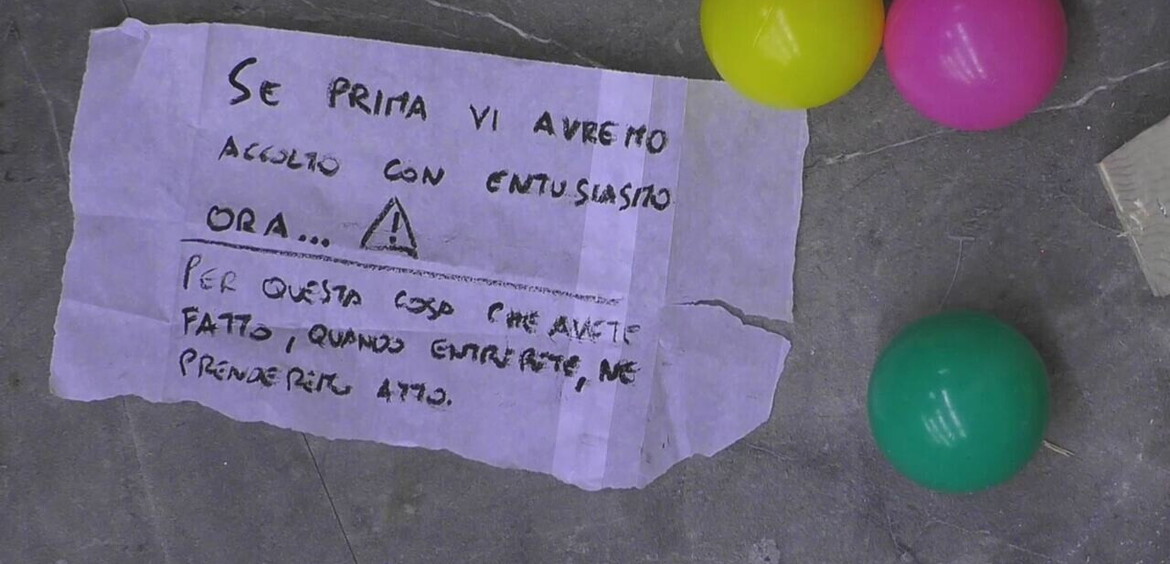 SE PRIMA VI AVREMO
ACCOLTO CON ENTUSIASMO
ORA... ⚠
PER QUESTA COSA CHE AVETE
FATTO, QUANDO ENTRERETE, NE
PRENDEREMO ATTO.